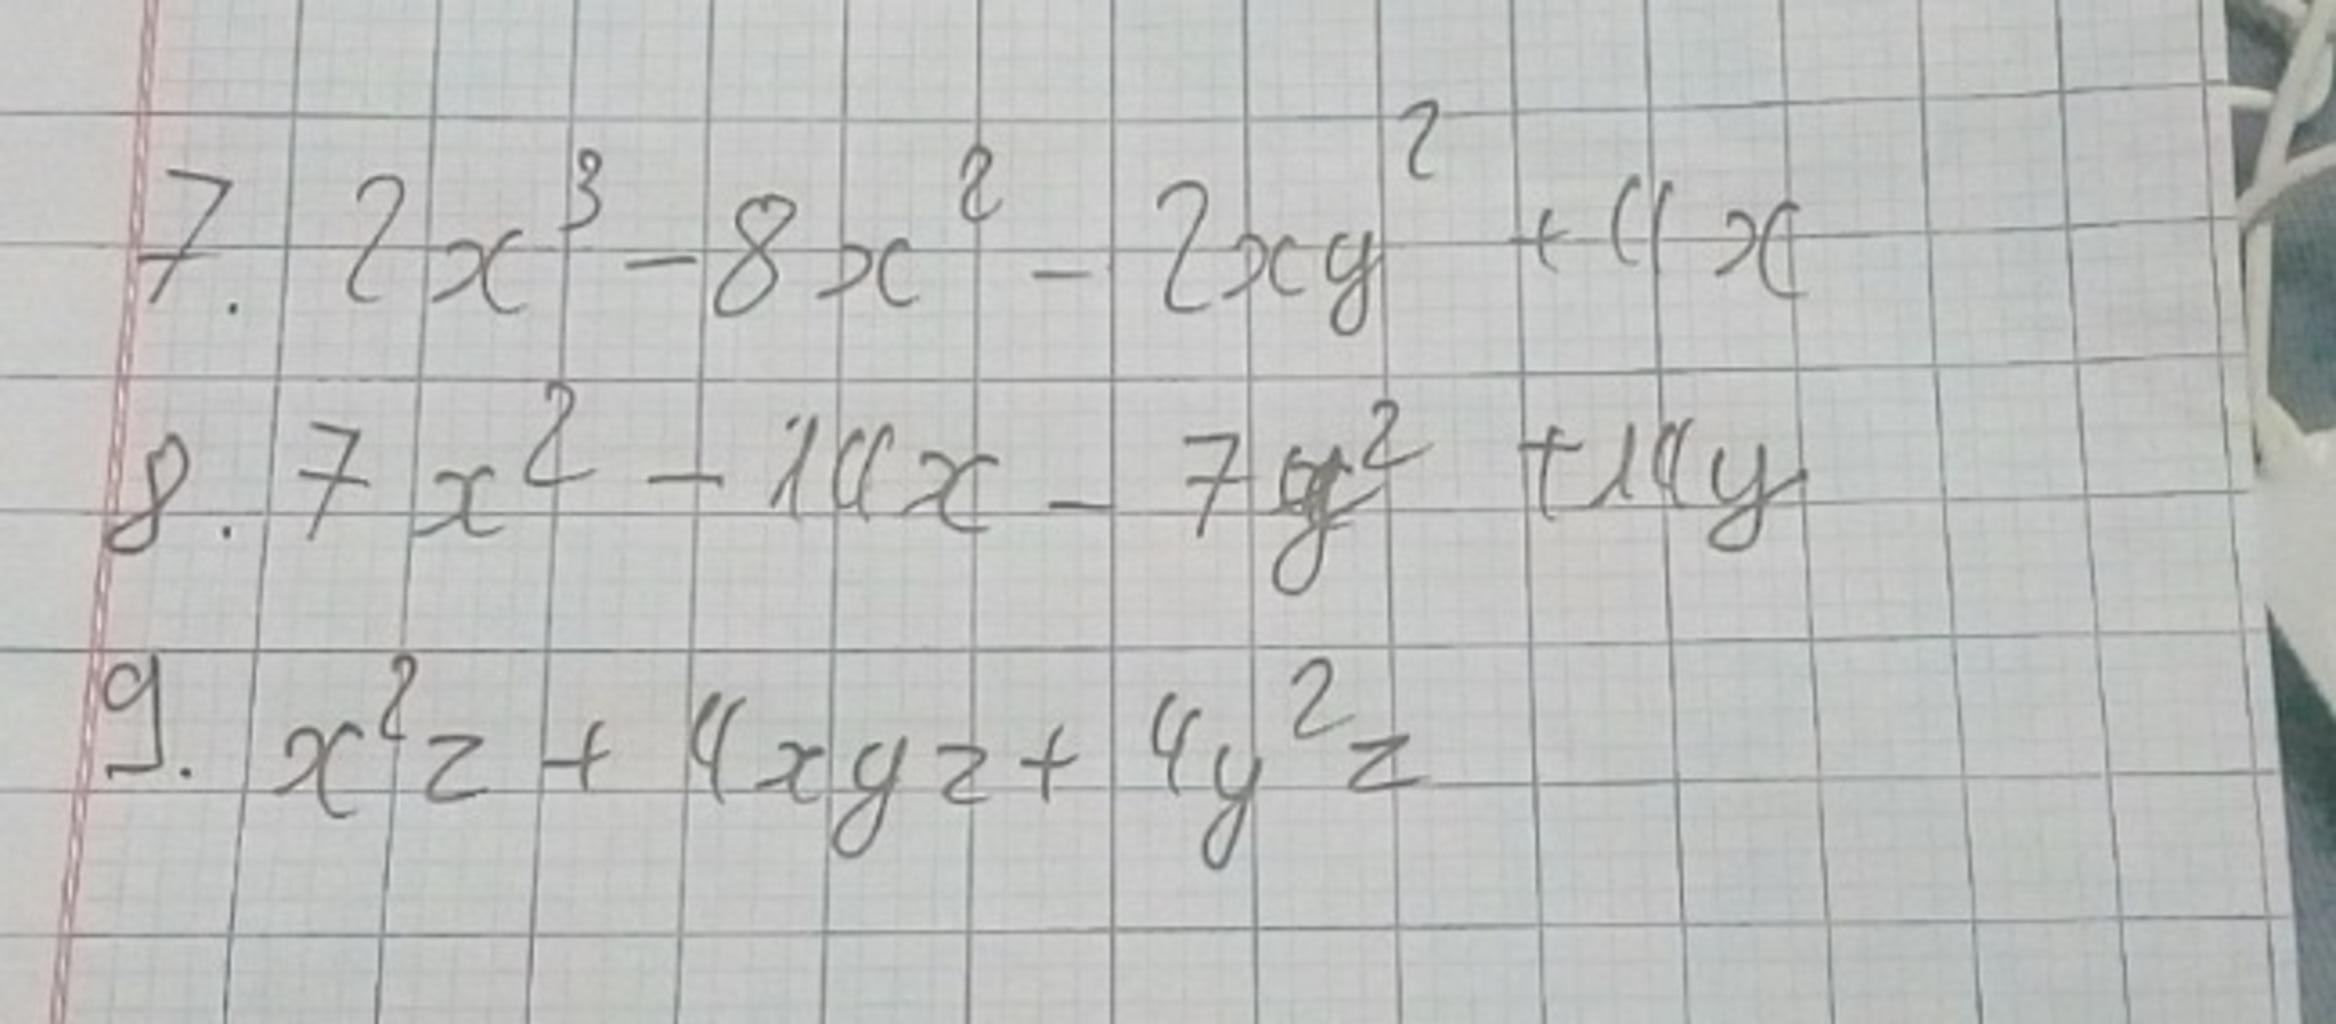 7. 2x³ - 8x² - 2xy² + 4x
8. 7x² - 14x - 7y² + 14y
9. x²z + 4xyz + 4y²z